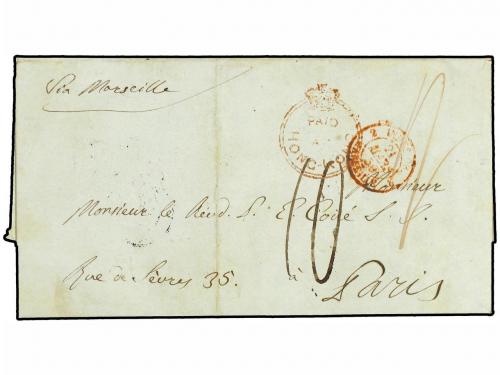 Via Marseille
PAID
HONG KONG
10
Monsieur
Monsieur le Révd. P. E. Coué S. J.
Rue de Sèvres 35.
à Paris